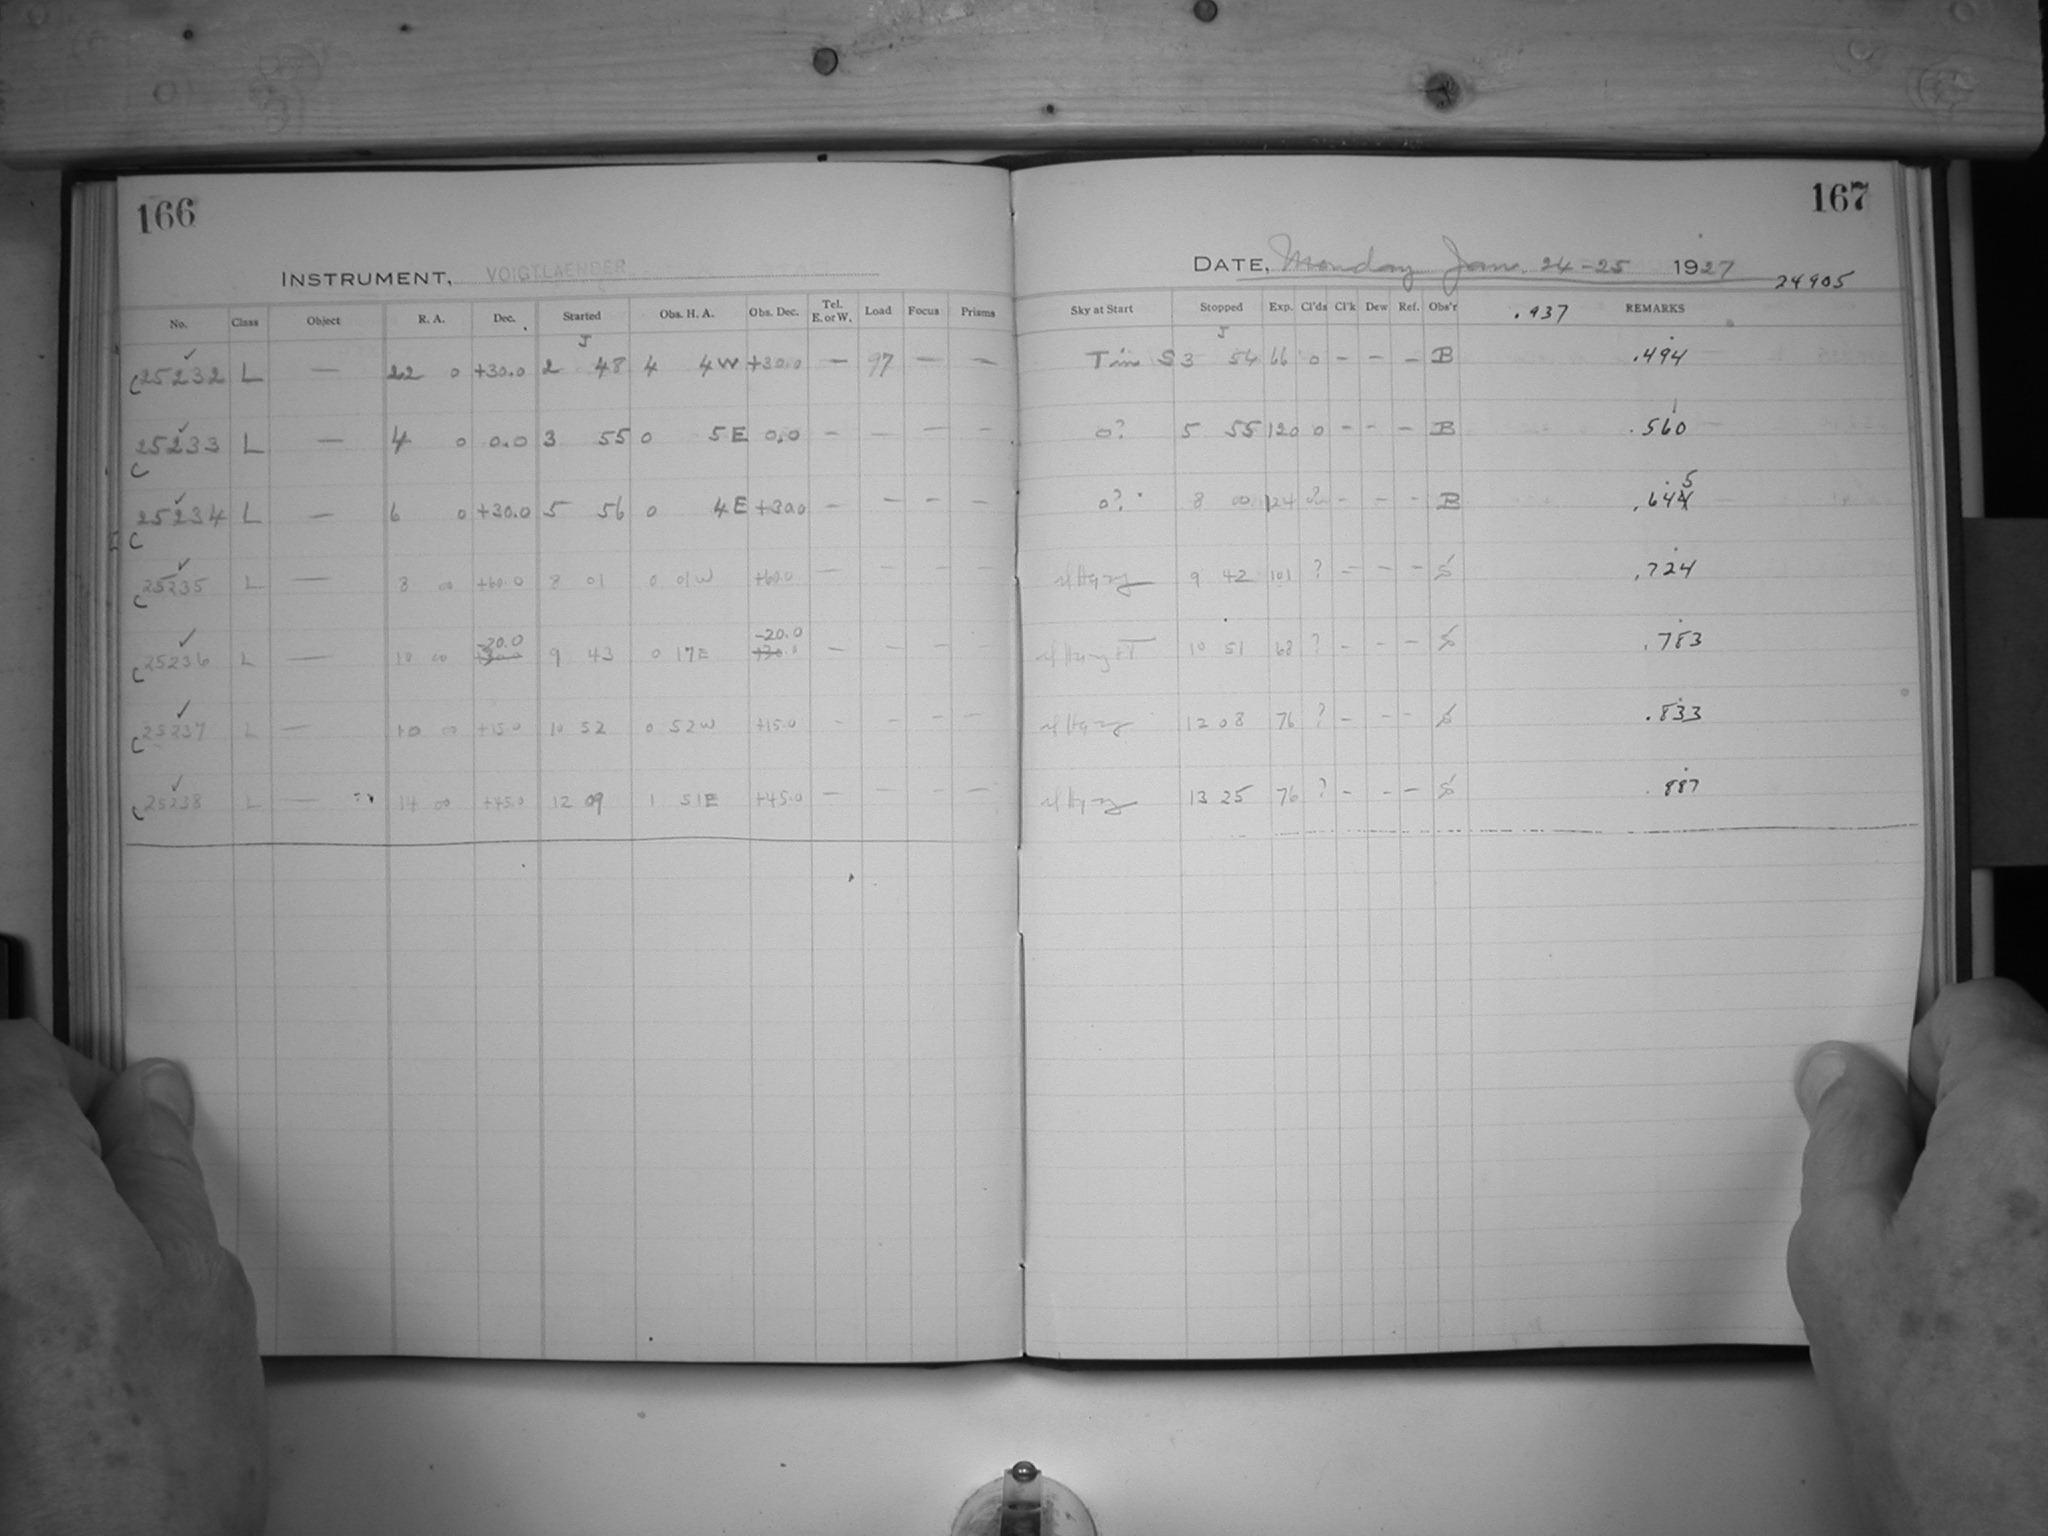 166
INSTRUMENT, VOIGTLAENDER
No. Class Object R. A. Dec. Started Obs. H. A. Obs. Dec. Tel. E. or W. Load Focus Prisms
J
C25232 ✓ L — 22 0 +30.0 2 48 4 4W +30.0 — 97 — —
C25233 ✓ L — 4 0 0.0 3 55 0 5E 0.0 — — — —
C25234 ✓ L — 6 0 +30.0 5 56 0 4E +30.0 — — — —
C25235 ✓ L — 8 00 +60.0 8 01 0 01W +60.0 — — — —
-20.0 -20.0
C25236 ✓ L — 10 00 +30.0 9 43 0 17E +30.0 — — — —
C25237 ✓ L — 10 00 +15.0 10 52 0 52W +15.0 - — — —
C25238 ✓ L — 14 00 +45.0 12 09 1 51E +45.0 — — — —
167
DATE, Monday Jan. 24-25 1927
24905
Sky at Start Stopped Exp. Cl'ds Cl'k Dew Ref. Obs'r .937 REMARKS
J
S 3 54 66 0 — — — B .494
1
0? 5 55 120 0 — — — B .560
5
0? 8 00 124 — — — B .644
9 42 101 ? — — — .724
10 51 68 ? — — — .783
12 08 76 ? — — — .833
13 25 76 ? — — — .887